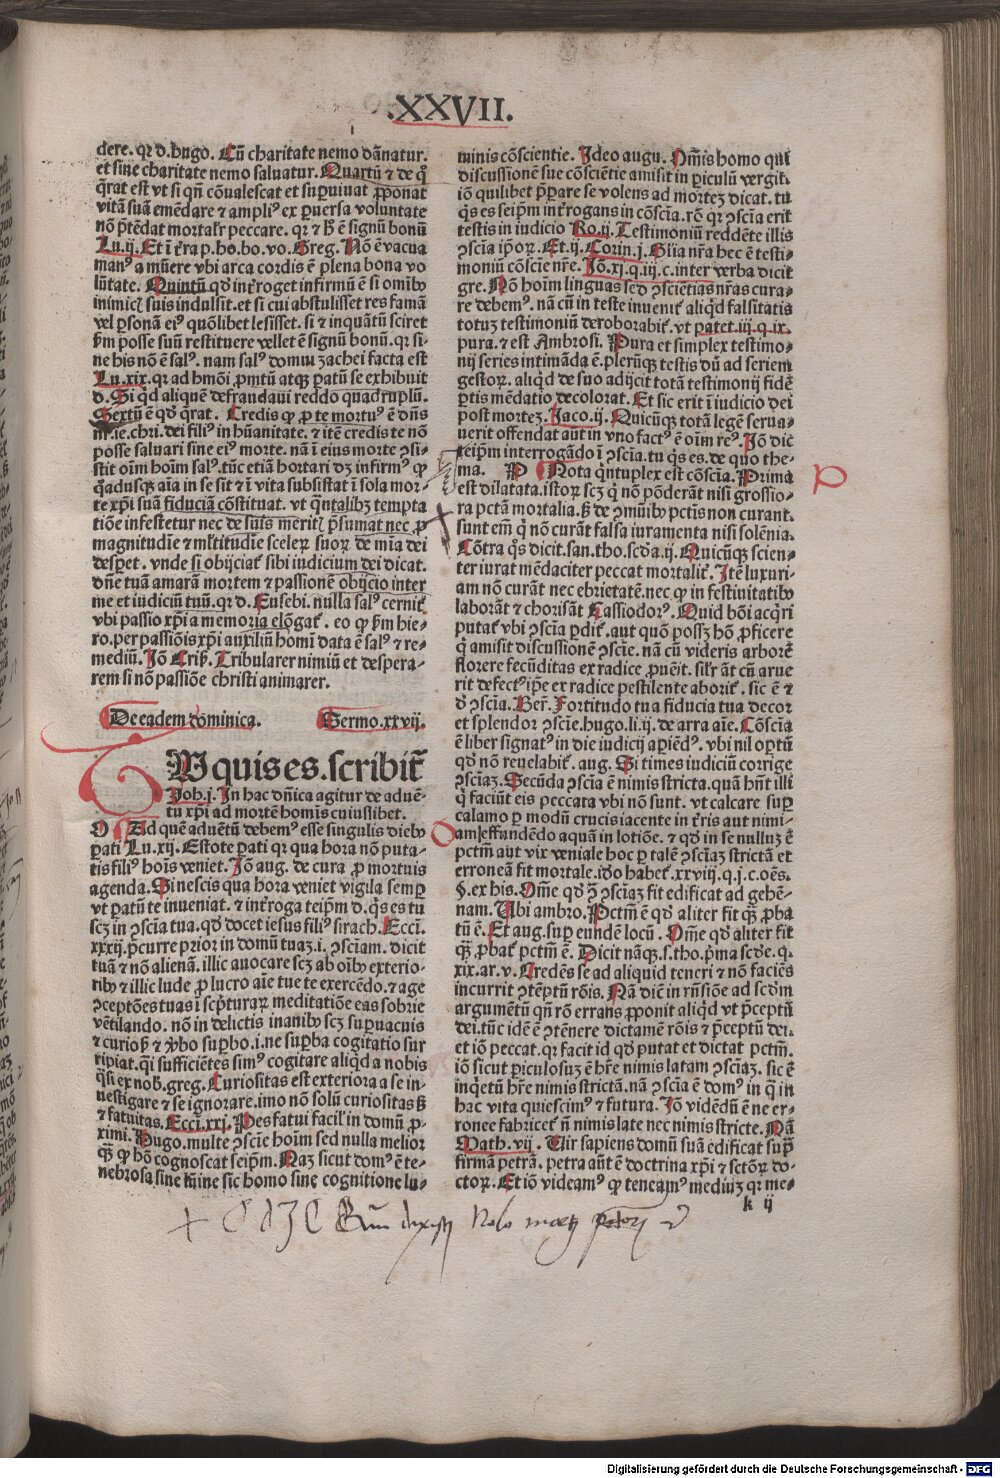 .XXVII.
dere. qr d. hugo. Cū charitate nemo dānatur.
et sine charitate nemo saluatur. Quartū ⁊ de q̄
q̄rat est vt si qn̄ cōualescat et sup̱uiuat ꝓponat
vitā suā emēdare ⁊ ampliꝰ ex ꝑuersa voluntate
nō p̄tēdat mortalr̄ peccare. qr ⁊ h̄ ē signū bonū
Lu.ij. Et ī t̄ra p. ho. bo. vo. Greg. Nō ē vacua
manꝰ a mūere vbi arca cordis ē plena bona vo
lūtate. Quintū qd̄ int̄roget infirmū ē si omībꝰ
inimicꝭ suis indulsit. et si cui abstulisset res famā
vel ꝑsonā eiꝰ quōlibet lesisset. si ⁊ inquātū sciret
ẜm posse suū restituere vellet ē signū bonū. qr si-
ne his nō ē salꝰ. nam salꝰ domui zachei facta est
Lu.xix. qr ad hmōi ꝓmtū atqꝫ ꝑatū se exhibuit
d. Si qd̄ aliquē defraudaui reddo quadruplū.
Sextū ē qd̄ q̄rat. Credis ꝙ ꝓ te mortuꝰ ē dn̄s
nr̄.ie.chri. dei filiꝰ in hūanitate. ⁊ itē credis te nō
posse saluari sine eiꝰ morte. nā ī eius morte ꝯsi-
stit oīm hoīm salꝰ. tūc etiā hortari dꝫ infirmꝰ ꝙ
q̄adusqꝫ aīa in se sit ⁊ ī vita subsistat ī sola mor-
te xp̄i suā fiduciā cōstituat. vt q̄ntalibꝫ tempta
tiōe infestetur nec de suis meritꝭ p̄sumat nec ꝓ
magnitudīe ⁊ ml̄titudīe sceleꝝ suoꝝ de mīa dei
desꝑet. vnde si obijciat᷑ sibi iudicium dei dicat.
dn̄e tuā amarā mortem ⁊ passionē obijcio inter
me et iudiciū tuū. qr d. Eusebi. nulla salꝰ cernit᷑
vbi passio xp̄i a memoria elōgat᷑. eo ꝙ ẜm hie-
ro. per passiōis xp̄i auxiliū homī data ē salꝰ ⁊ re-
mediū. Jō Criß. Tribularer nimiū et despera-
rem si nō passiōe christi animarer.
De eadem dominica. Sermo.xxvij.
TV quis es. scribit᷑
Joh.j. In hac dn̄ica agitur de aduē-
tu xp̄i ad mortē homīs cuiuslibet.
O Ad quē aduētū debemꝰ esse singulis diebꝰ
ꝑati Lu.xij. Estote ꝑati qr qua hora nō puta-
tis filiꝰ hoīs veniet. Jō aug. de cura ꝓ mortuis
agenda. Si nescis qua hora veniet vigila semꝑ
vt ꝑatū te inueniat. ⁊ int̄roga teip̄m d. q̄s es tu
scꝫ in ꝯscīa tua. qd̄ docet iesus filiꝰ sirach. Ecci.
xxxij. p̄curre prior in domū tuaꝫ.i. ꝯscīam. dicit
tuā ⁊ nō alienā. illic auocare scꝫ ab oībꝰ exterio-
ribꝰ ⁊ illic lude ꝓ lucro aīe tue te exercēdo. ⁊ age
ꝯceptōes tuas ī scp̄turaꝝ meditatiōe eas sobrie
vētilando. nō in delictis inanibꝰ scꝫ suꝑuacuis
⁊ curioß ⁊ v̓bo suꝑbo.i. ne suꝑba cogitatio sur
ripiat. q̄i sufficiētes simꝰ cogitare aliqd̄ a nobis
q̄si ex nob̄. greg. Curiositas est exteriora a se in-
vestigare ⁊ se ignorare. imo nō solū curiositas ß
⁊ fatuitas. Ecci.xxj. Pes fatui facil̄ in domū ꝓ-
ximi. Hugo. multe ꝯscīe hoīm sed nulla melior
q̄ꝫ ꝙ hō cognoscat seip̄m. Naꝫ sicut domꝰ ē te-
nebrosa sine lūine sic homo sine cognitione lu-
minis cōscientie. Jdeo augu. Om̄is homo qui
discussionē sue cōsciētie amisit in ꝑiculū vergit᷑.
iō quilibet p̄ꝑare se volens ad morteꝫ dicat. tu
q̄s es seip̄m int̄rogans in cōscīa. rō qr ꝯscīa erit
testis in iudicio Ro.ij. Testimoniū reddēte illis
ꝯscīa ip̄oꝝ. Et.ij. Corin.j. Gl̄ia nr̄a hec ē testi-
moniū cōscīe nr̄e. Jō.xj.q.iij.c.inter verba dicit
gre. Nō hoīm linguas sed ꝯsciētias nr̄as cura-
re debemꝰ. nā cū in teste inuenit᷑ aliqd̄ falsitatis
totuꝫ testimoniū deroborabit᷑. vt patet.iij.q.ix.
pura. ⁊ est Ambrosi. Pura et simplex testimo-
nij series intimāda ē. plerūqꝫ testis dū ad seriem
gestoꝝ. aliqd̄ de suo adijcit totā testimonij fidē
ꝑtis mēdatio decolorat. Et sic erit ī iudicio dei
post morteꝫ. Jaco.ij. Quicūqꝫ totā legē serua-
uerit offendat aūt in vno factꝰ ē oīm reꝰ. Jō dic
teip̄m interrogādo ī ꝯscīa. tu q̄s es. de quo the-
ma. P Nota q̄ntuplex est cōscīa. Prima
est dilatata. istoꝝ scꝫ q̄ nō pōderāt nisi grossio-
ra pctā mortalia. ß de ꝯmūibꝰ pctīs non curant.
sunt em̄ q̄ nō curāt falsa iuramenta nisi solēnia.
Cōtra q̄s dicit. san. tho. scd̄a.ij. Quicūqꝫ scien-
ter iurat mēdaciter peccat mortalit᷑. Jtē luxuri-
am nō curāt nec ebrietatē. nec ꝙ in festiuitatibꝰ
laborāt ⁊ chorisāt Cassiodorꝰ. Quid hōi acq̄ri
putat᷑ vbi ꝯscīa ꝑdit᷑. aut quō possꝫ hō ꝓficere
q̄ amisit discussionē ꝯscīe. nā cū videris arborē
florere fecūditas ex radice ꝓuēit. silr̄ āt cū arue
rit defectꝰ ip̄e ex radice pestilente aborit᷑. sic ē ⁊
d̄ ꝯscīa. Ber̄. Fortitudo tua fiducia tua decor
et splendor ꝯscīe. hugo.li.ij. de arra aīe. Cōscīa
ē liber signatꝰ in die iudicij aꝑiēdꝰ. vbi nil oꝑtū
qd̄ nō reuelabit᷑. aug. Si times iudiciū corrige
ꝯscīaꝫ. Secūda ꝯscīa ē nimis stricta. quā hn̄t illi
q̄ faciūt eis peccata vbi nō sunt. vt calcare suꝑ
calamo ꝑ modū crucis iacente in t̄ris aut nimi-
am effundēdo aquā in lotiōe. ⁊ qd̄ in se nulluꝫ ē
pctm̄ aut vix veniale hoc ꝑ talē ꝯscīaꝫ strictā et
erroneā fit mortale. idō habet᷑.xxviij.q.j.c.oēs.
§. ex his. Om̄e qd̄ ꝯ̄ ꝯscīaꝫ fit edificat ad gehē-
nam. Ubi ambro. Pctm̄ ē qd̄ aliter fit q̄ꝫ ꝓba
tū ē. Et aug. suꝑ eundē locū. Om̄e qd̄ aliter fit
q̄ꝫ ꝓbat᷑ pctm̄ ē. Dicit nāqꝫ. s. tho. p̄ma scd̄e. q.
xix. ar. v. Credēs se ad aliquid teneri ⁊ nō faciēs
incurrit ꝯtēptū rōis. Nā diē in rn̄siōe ad scdm̄
argumētū qn̄ rō errans ꝓponit aliqd̄ vt p̄ceptū
dei. tūc idē ē ꝯtēnere dictamē rōis ⁊ p̄ceptū dei.
et iō peccat. qr facit id qd̄ putat et dictat pctm̄.
iō sicut ꝑiculosuꝫ ē hr̄e nimis latam ꝯscīaꝫ. sic ē
inq̄etū hr̄e nimis strictā. nā ꝯscīa ē domꝰ in q̄ in
hac vita quiescimꝰ ⁊ futura. Jō vidēdū ē ne er-
ronee fabricet᷑ n̄ nimis late nec nimis stricte. Nā
Math.vij. Vir sapiens domū suā edificat suꝑ
firmā petrā. petra aūt ē doctrina xp̄i ⁊ sctōꝝ do-
ctoꝝ. Et iō videamꝰ ꝙ teneamꝰ mediuꝫ qr me-
k ij
P
O
Nolo mortem peccatoris
Digitalisierung gefördert durch die Deutsche Forschungsgemeinschaft - DFG